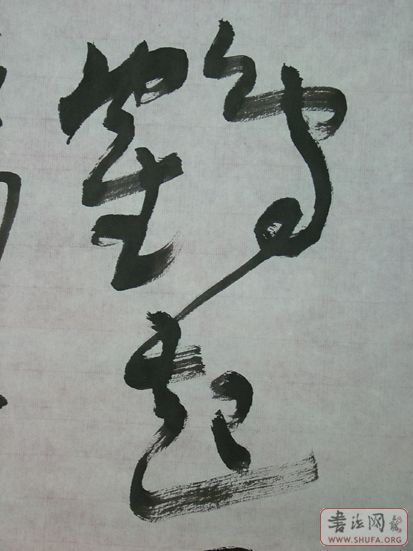 鶴
起
书法网
WWW.SHUFA.ORG